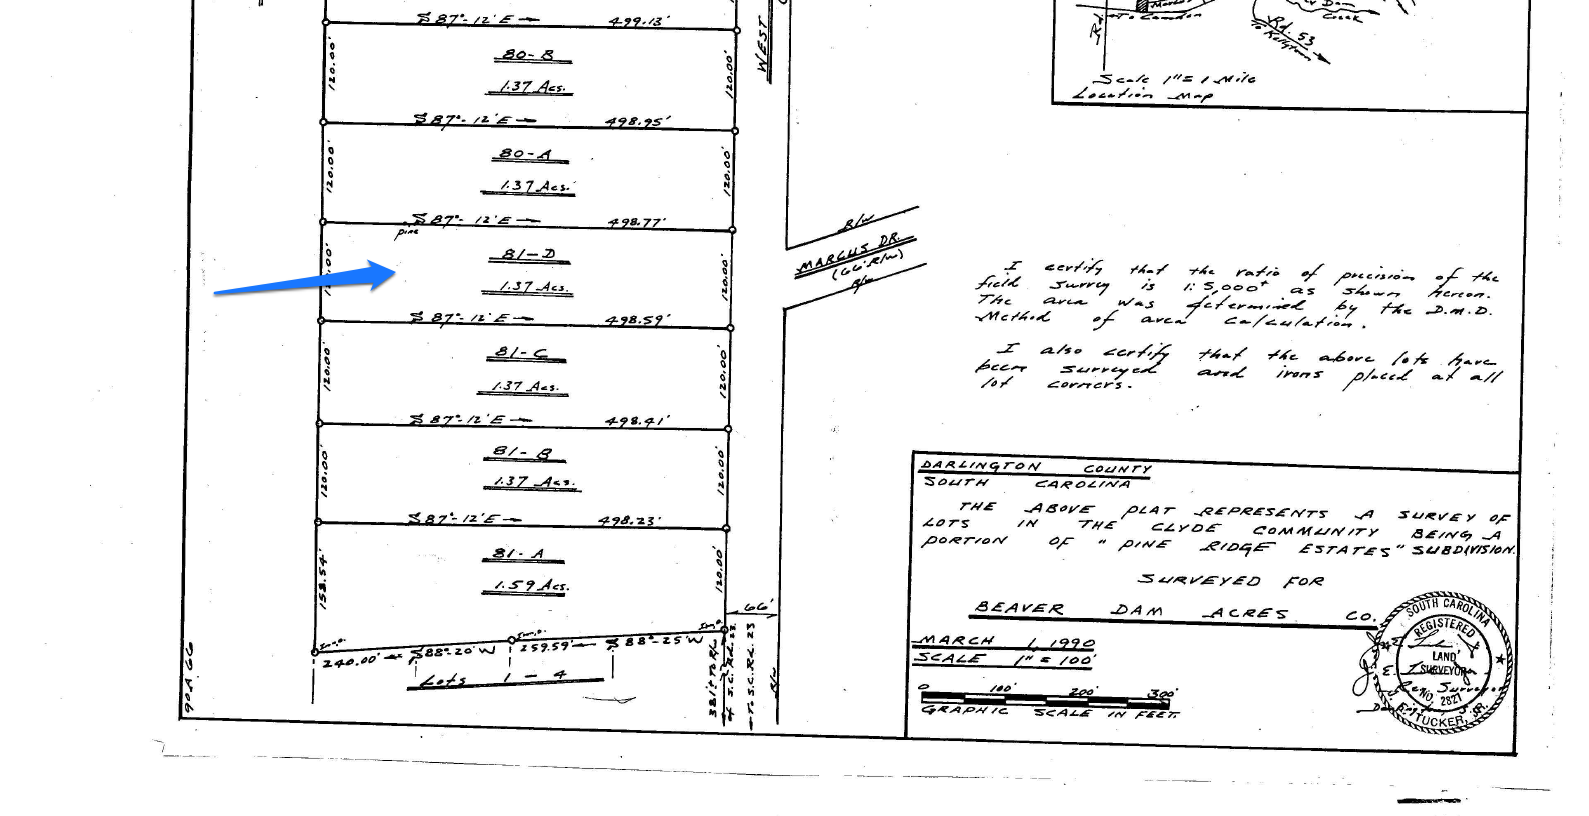 S 87°- 12' E 499.13'
120.00'
80-B
1.37 Acs.
120.00'
S 87°- 12' E 498.95'
120.00'
80-A
1.37 Acs.
120.00'
S 87°- 12' E 498.77'
pine
81-D
1.37 Acs.
120.00'
S 87°- 12' E 498.59'
120.00'
81-C
1.37 Acs.
120.00'
S 87°- 12' E 498.41'
120.00'
81-B
1.37 Acs.
120.00'
S 87°- 12' E 498.23'
158.54'
81-A
1.59 Acs.
120.00'
66'
240.00' S 88°-20' W 259.59' S 88°-25' W
Lots 1 - 4
of S.C. Rd. 23
To S.C. Rd. 23
R/W
90A66
WEST
R/W
MARCUS DR.
(66' R/W)
R/W
Rd.
To Camden
Dam
Creek
Rd. 53
To Kellytown
Scale 1" = 1 Mile
Location Map
I certify that the ratio of precision of the
field survey is 1:5,000+ as shown hereon.
The area was determined by the D.M.D.
Method of area calculation.
I also certify that the above lots have
been surveyed and irons placed at all
lot corners.
DARLINGTON COUNTY
SOUTH CAROLINA
THE ABOVE PLAT REPRESENTS A SURVEY OF
LOTS IN THE CLYDE COMMUNITY BEING A
PORTION OF "PINE RIDGE ESTATES" SUBDIVISION.
SURVEYED FOR
BEAVER DAM ACRES CO.
MARCH 1, 1990
SCALE 1" = 100'
0 100' 200' 300'
GRAPHIC SCALE IN FEET.
SOUTH CAROLINA
REGISTERED
LAND
SURVEYOR
NO. 2827
TUCKER, JR.